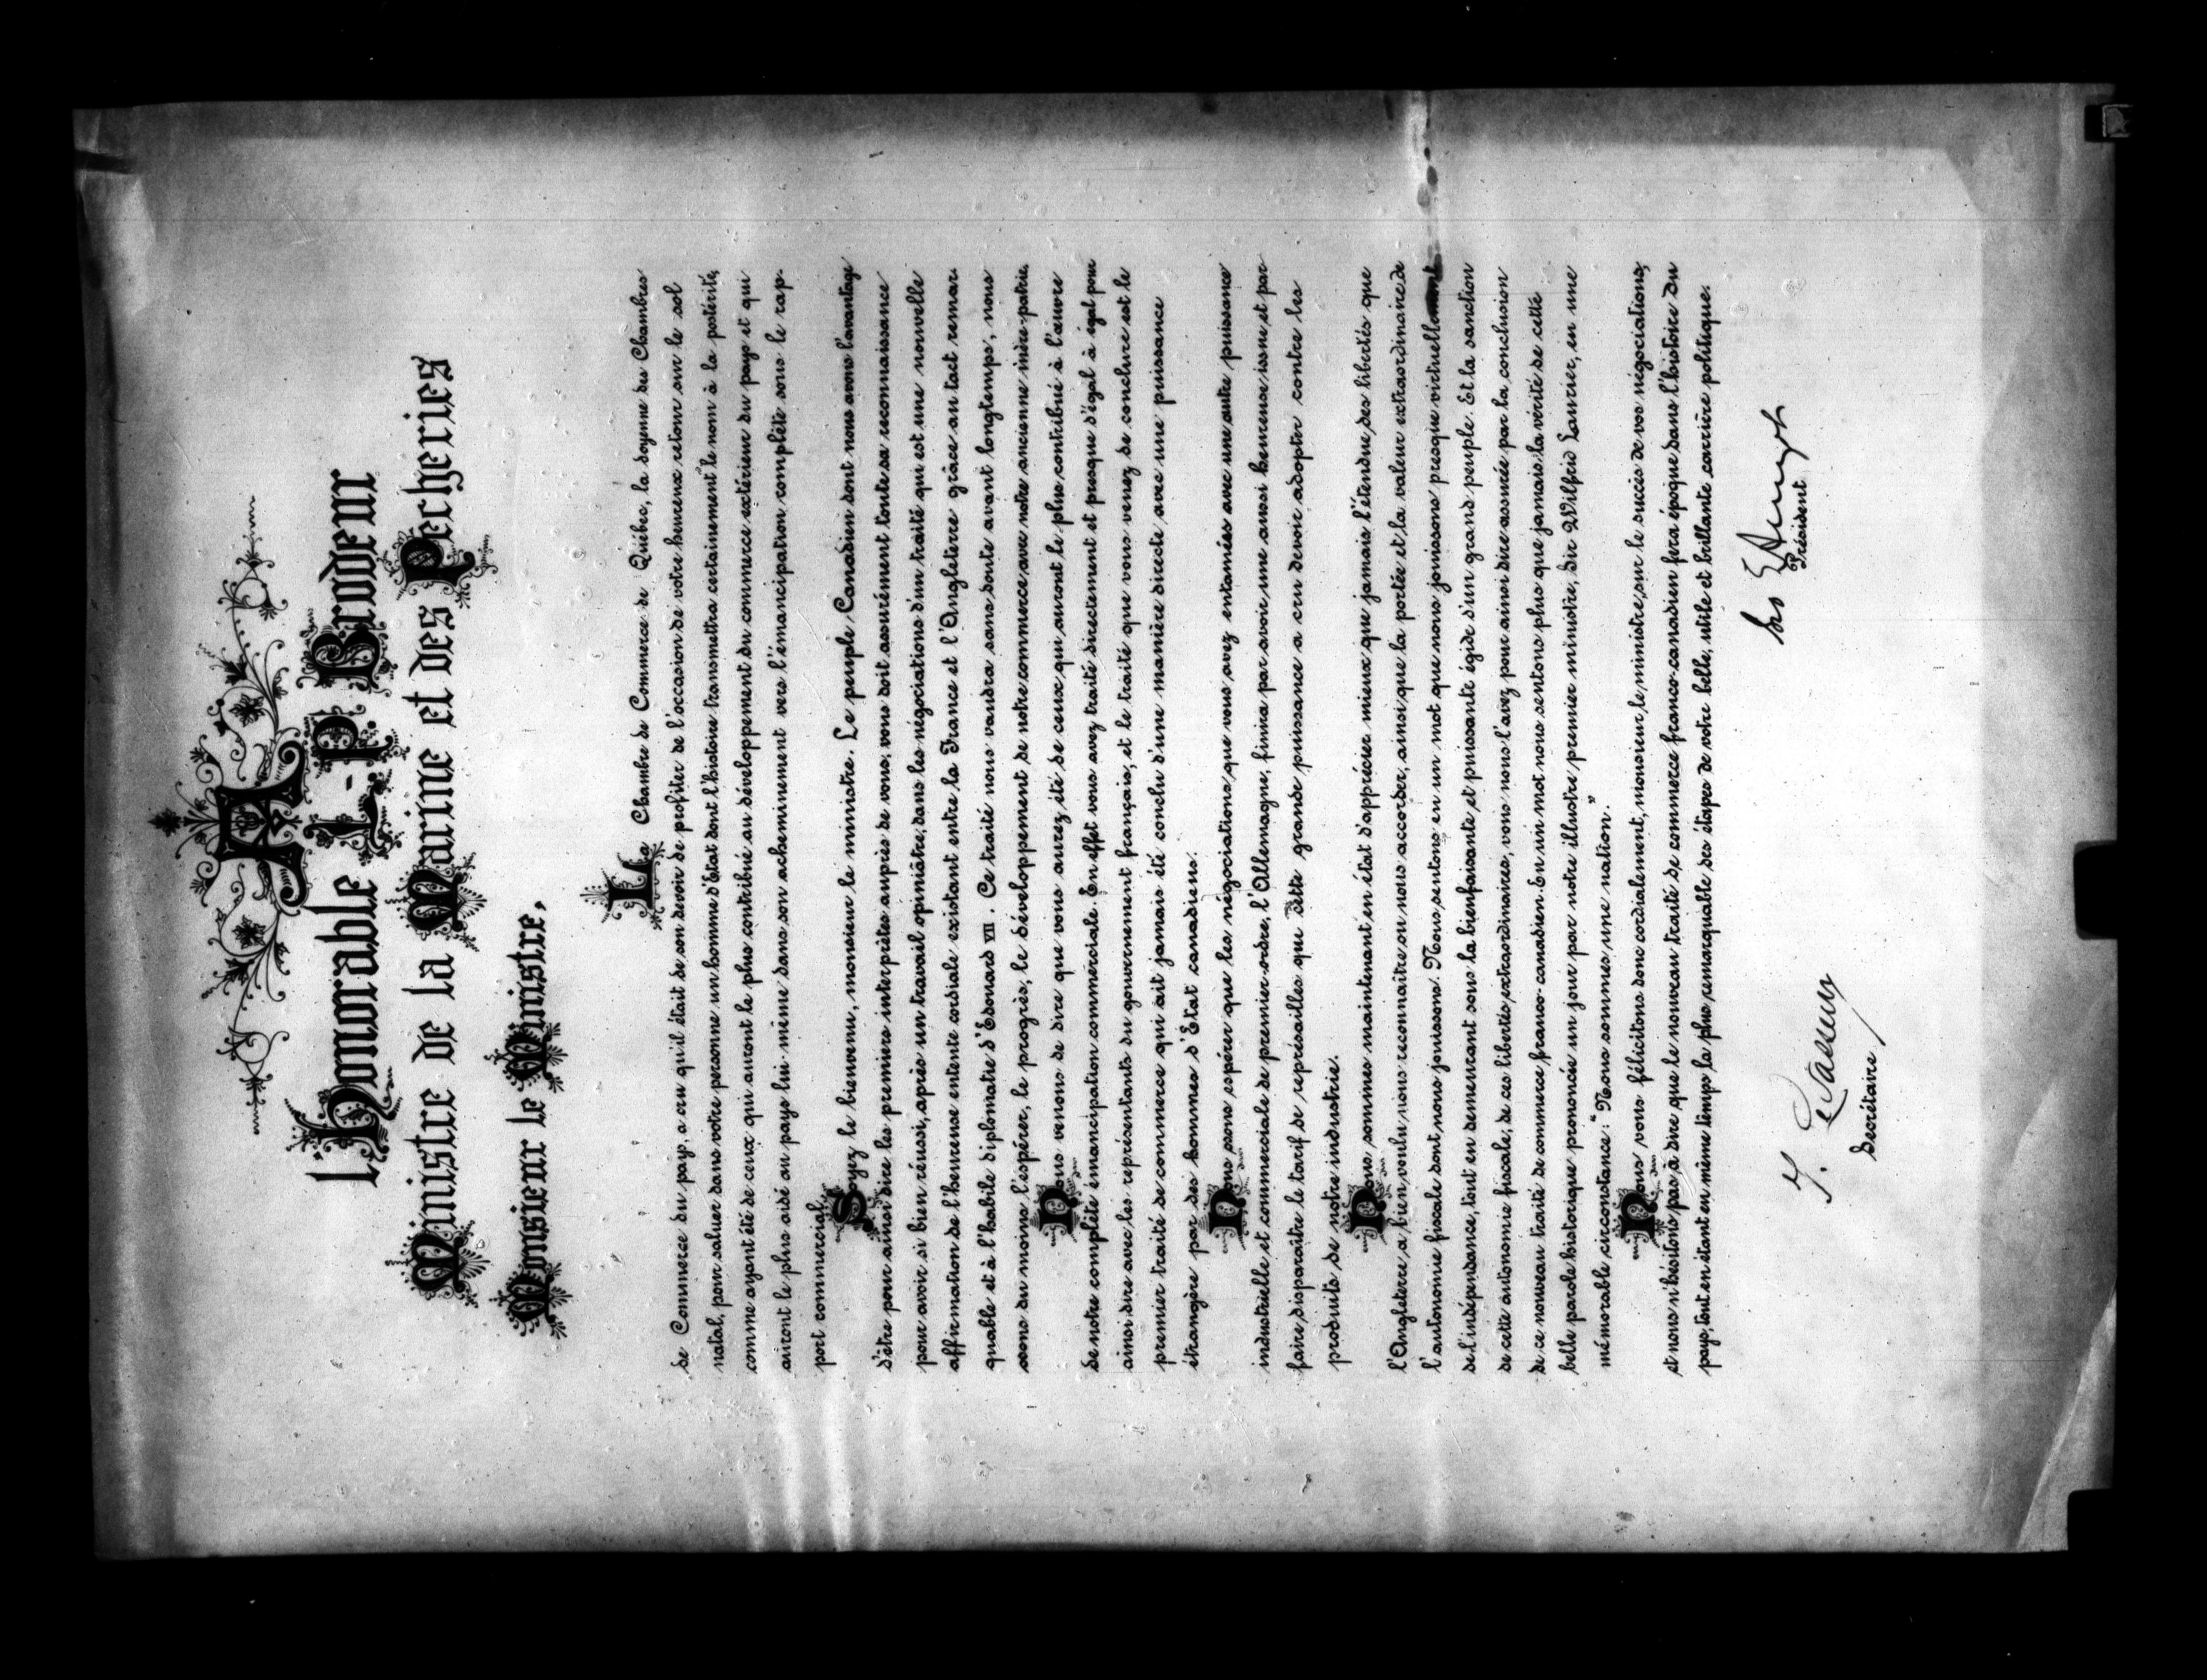 A
l'Honorable L.-P. Brodeur
Ministre de la Marine et des Pêcheries
Monsieur le Ministre,
La Chambre de Commerce de Québec, la doyenne des Chambres
de Commerce du pays, a cru qu'il était de son devoir de profiter de l'occasion de votre heureux retour sur le sol
natal, pour saluer dans votre personne un homme d'Etat dont l'histoire transmettra certainement le nom à la postérité,
comme ayant été de ceux qui auront le plus contribué au développement du commerce extérieur du pays et qui
auront le plus aidé au pays lui-même dans son acheminement vers l'émancipation complète sous le rap-
port commercial.
Soyez le bienvenu, monsieur le ministre. Le peuple Canadien dont nous avons l'avantage
d'être pour ainsi dire les premiers interprètes auprès de vous, vous doit assurément toute sa reconnaissance
pour avoir si bien réussi, après un travail opiniâtre, dans les négociations d'un traité qui est une nouvelle
affirmation de l'heureuse entente cordiale existant entre la France et l'Angleterre grâce au tact remar-
quable et à l'habile diplomatie d'Edouard VII. Ce traité nous vaudra sans doute avant longtemps, nous
osons du moins l'espérer, le progrès, le développement de notre commerce avec notre ancienne mère-patrie.
Nous venons de dire que vous aurez été de ceux qui auront le plus contribué à l'œuvre
de notre complète émancipation commerciale. En effet vous avez traité directement et presque d'égal à égal pour
ainsi dire avec les représentants du gouvernement français, et le traité que vous venez de conclure est le
premier traité de commerce qui ait jamais été conclu d'une manière directe avec une puissance
étrangère par des hommes d'Etat canadiens.
Nous osons espérer que les négociations que vous avez entamées avec une autre puissance
industrielle et commerciale de premier ordre, l'Allemagne, finira par avoir une aussi heureuse issue et par
faire disparaître le tarif de représailles que cette grande puissance a cru devoir adopter contre les
produits de notre industrie.
Nous sommes maintenant en état d'apprécier mieux que jamais l'étendue des libertés que
l'Angleterre a bien voulu nous reconnaître ou nous accorder, ainsi que la portée et la valeur extraordinaire de
l'autonomie fiscale dont nous jouissons. Nous sentons en un mot que nous jouissons presque virtuellement
de l'indépendance, tout en demeurant sous la bienfaisante et puissante égide d'un grand peuple. Et la sanction
de cette autonomie fiscale, de ces libertés extraordinaires, vous nous l'avez pour ainsi dire assurée par la conclusion
de ce nouveau traité de commerce franco-canadien. En un mot nous sentons plus que jamais la vérité de cette
belle parole historique prononcée un jour par notre illustre premier ministre, Sir Wilfrid Laurier, en une
mémorable circonstance: "Nous sommes une nation."
Nous vous félicitons donc cordialement, monsieur le ministre, sur le succès de vos négociations,
et nous n'hésitons pas à dire que le nouveau traité de commerce franco-canadien fera époque dans l'histoire du
pays, tout en étant en même temps la plus remarquable des étapes de votre belle, utile et brillante carrière politique.
Président
Secrétaire